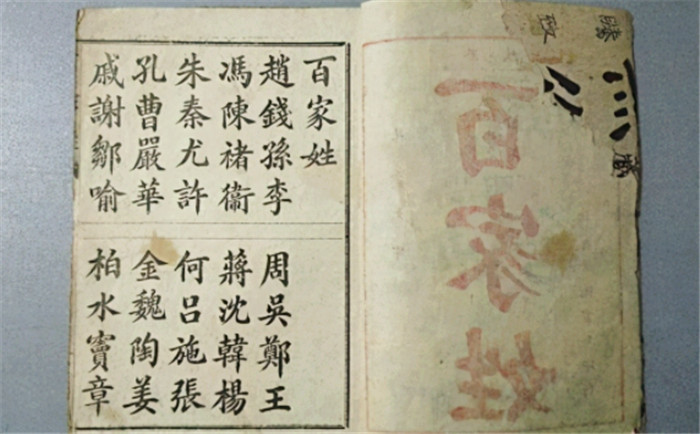 百家姓
百家姓
趙錢孫李
周吳鄭王
馮陳褚衛
蔣沈韓楊
朱秦尤許
何呂施張
孔曹嚴華
金魏陶姜
戚謝鄒喻
柏水竇章